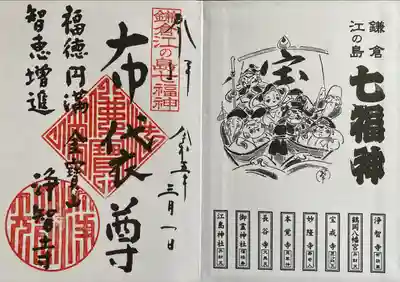 鎌倉
江の島
七福神
宝
浄智寺
鶴岡八幡宮
宝戒寺
妙隆寺
本覚寺
長谷寺
御霊神社
江島神社
三月一日
鎌倉江の島七福神
布袋尊
金宝山
浄智寺
福徳円満
智恵増進